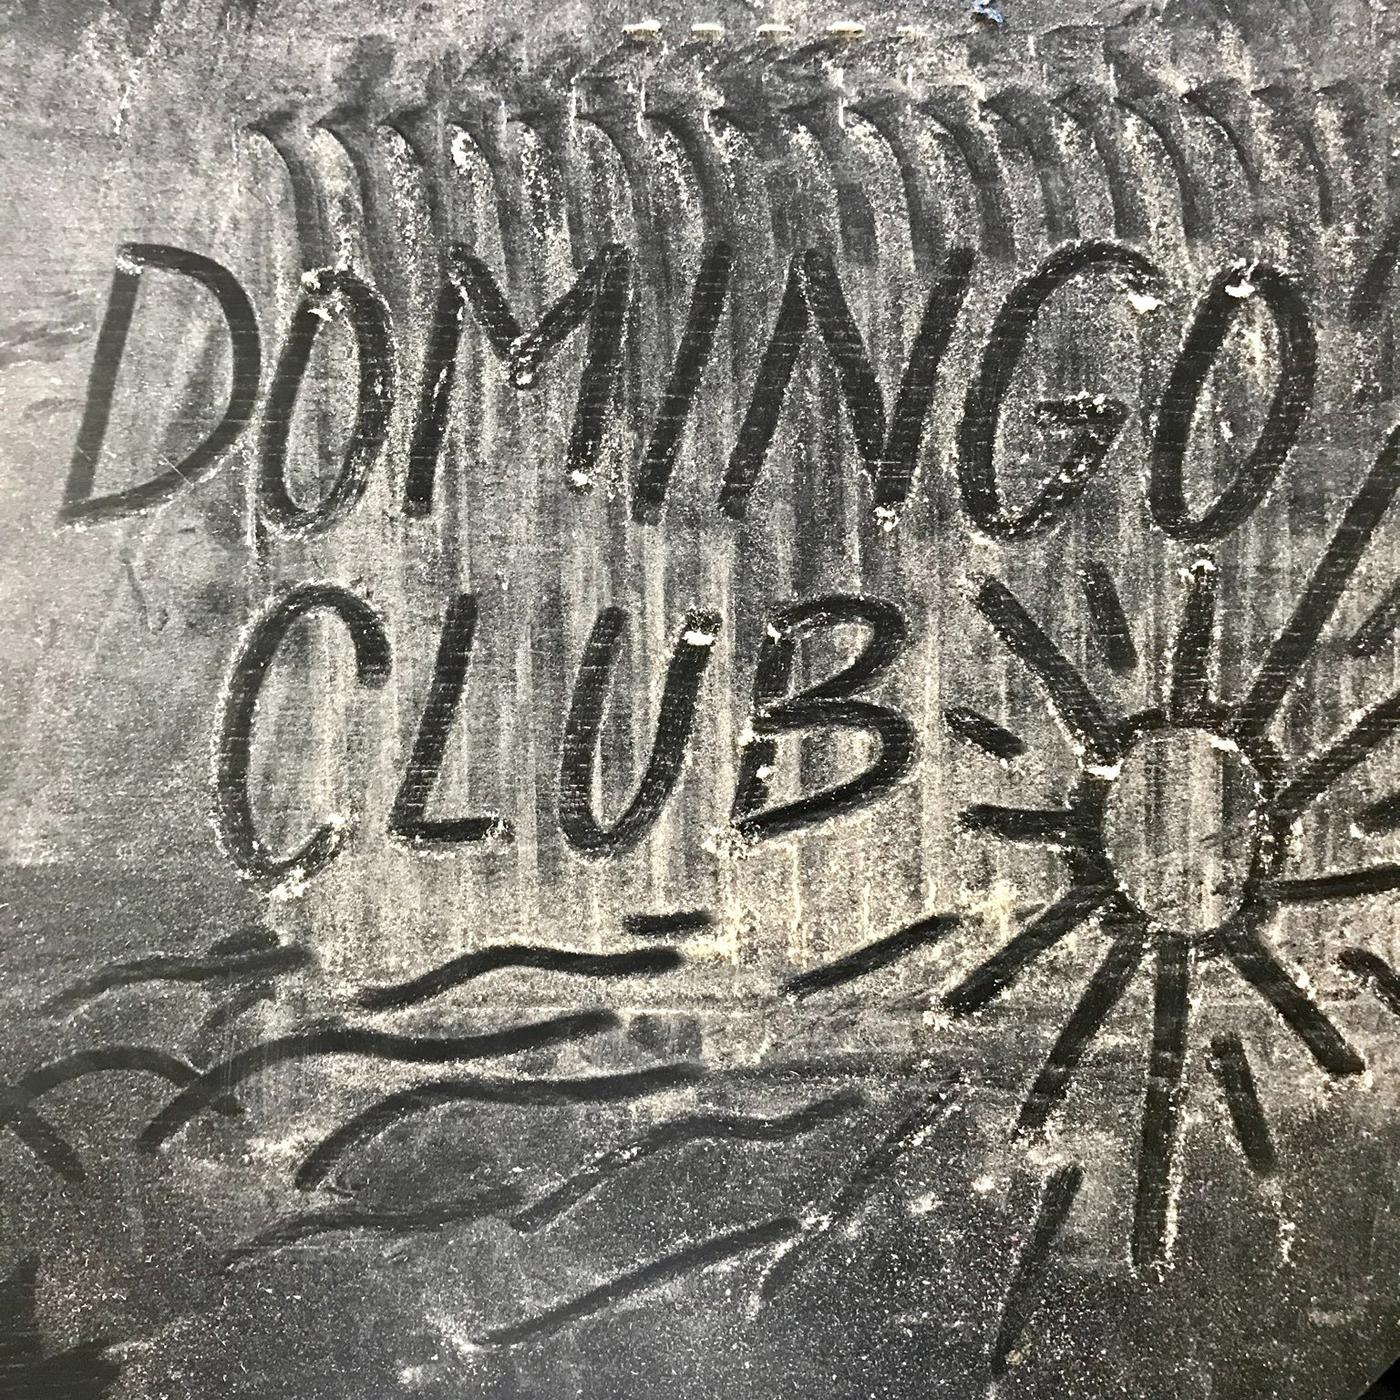 DOMINGO
CLUB